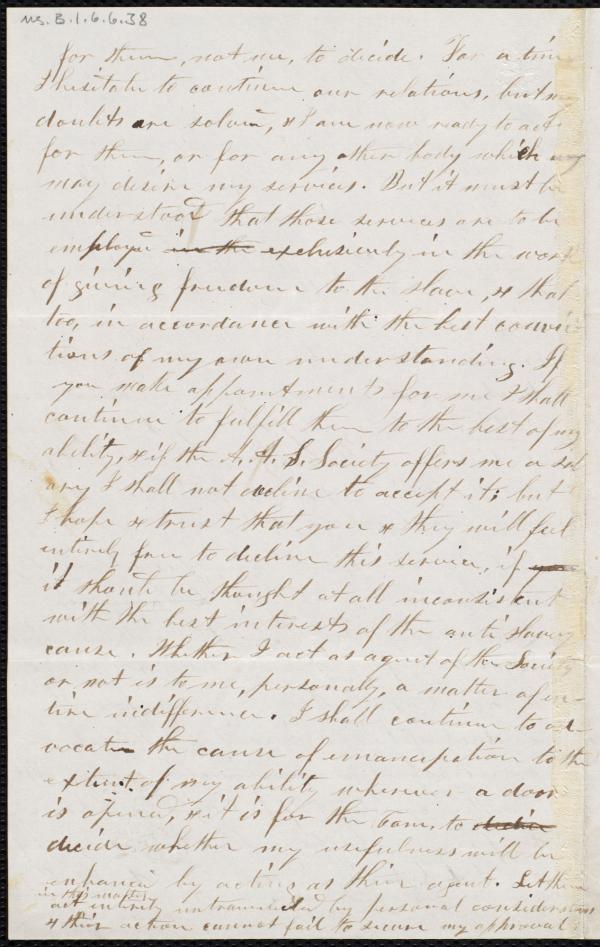 Ms. B.1.6.6.38
for them, not me, to decide. For a time
I hesitate to continue our relations, but my
doubts are solved, & I am now ready to act
for them, or for any other body which
may desire my services. But it must be
understood that those services are to be
employed in the exclusively in the work
of giving freedom to the slave, & that
too, in accordance with the best convic-
tions of my own understanding. If
you make appointments for me I shall
continue to fulfill them to the best of my
ability, & if the A. A. S. Society offers me a sal
ary I shall not decline to accept it; but
I hope & trust that you & they will feel
entirely free to decline this service, if you
it should be thought at all inconsistent
with the best interests of the anti slavery
cause. Whether I act as agent of the Society
or not is to me, personally, a matter of en-
tire indifference. I shall continue to ad-
vocate the cause of emancipation to the
extent of my ability wherever a door
is opened, & it is for the Com. to decline
decide whether my usefulness will be
enhanced by acting as their agent. Let them
in this matter
act entirely untrammeled by personal considerations
& their action cannot fail to secure my approval